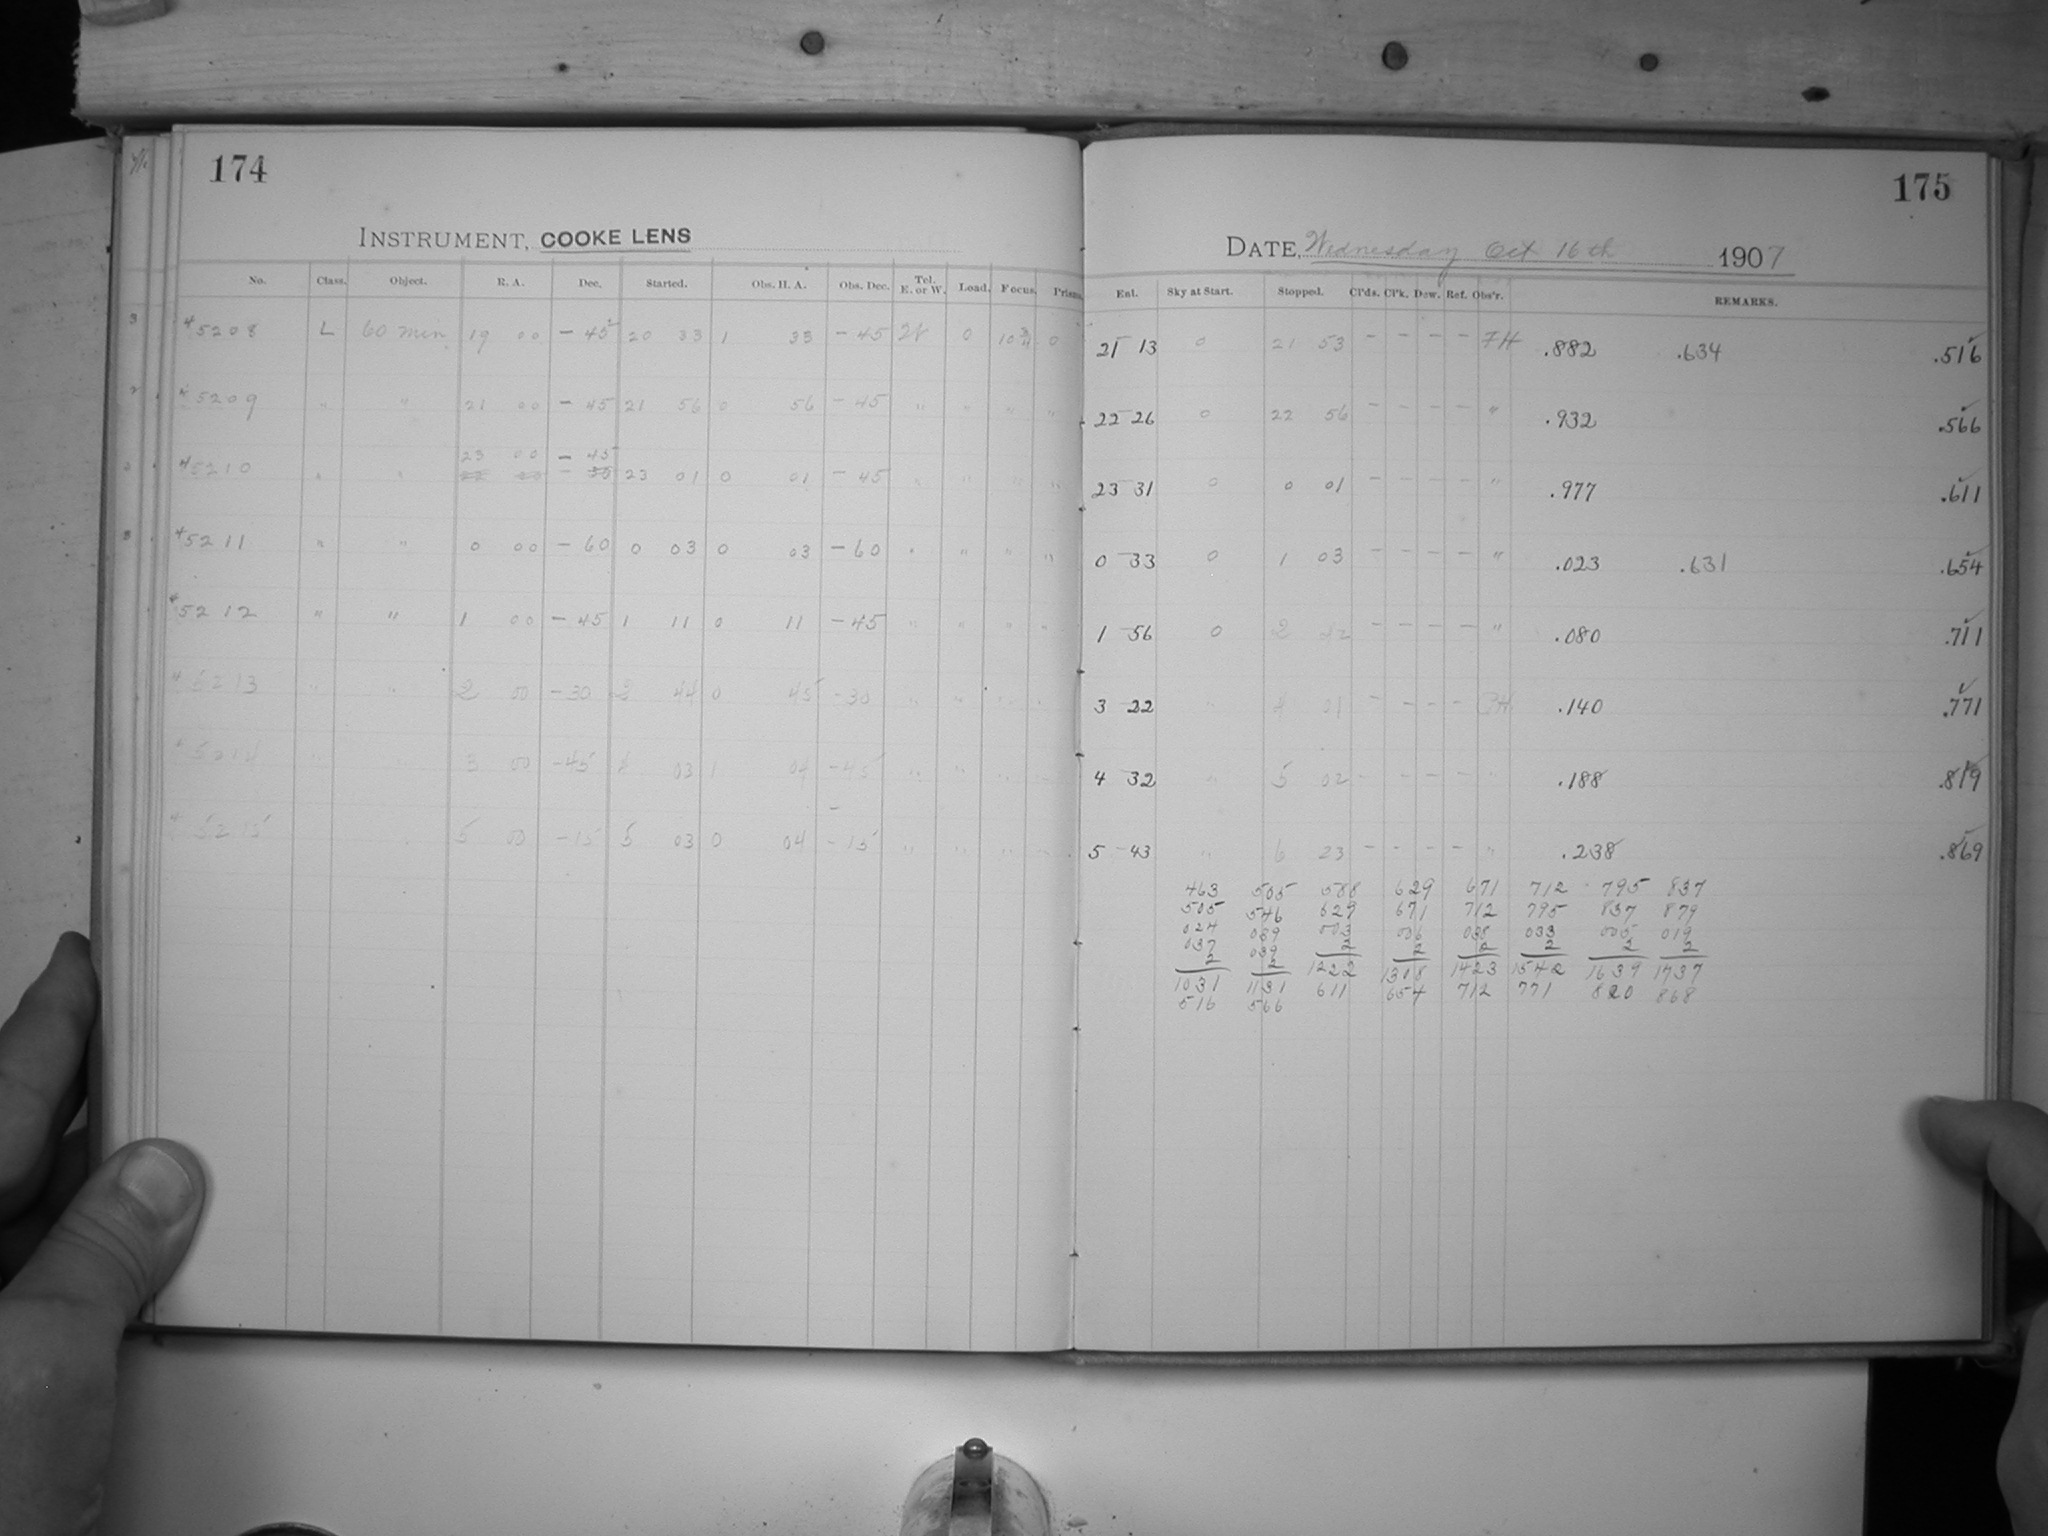 174
INSTRUMENT, COOKE LENS
No. Class. Object. R. A. Dec. Started. Obs. H. A. Obs. Dec. Tel. E. or W. Load. Focus. Prisms
3 5208 L 60 min 19 00 - 45 20 33 1 33 - 45 W 0 10 3/4 0
2 5209 " " 21 00 - 45 21 56 0 56 - 45 " " " "
5210 " " 23 00 - 45 23 01 0 01 - 45 " " " "
3 5211 " " 0 00 - 60 0 03 0 03 - 60 " " " "
5212 " " 1 00 - 45 1 11 0 11 - 45 " " " "
5213 " " 2 00 - 30 2 44 0 45 - 30 " " " "
3 00 - 45 03 1 04 - 45 " "
5215 5 00 - 15 5 03 0 04 - 15 " " "
175
DATE, Wednesday Oct 16th 1907
Ent. Sky at Start. Stopped. Cl'ds. Cl'k. Dew. Ref. Obs'r. REMARKS.
21 13 0 21 53 - - - - FH .882 .634 .516
22 26 0 22 56 - - - - " .932 .566
23 31 0 0 01 - - - - " .977 .611
0 33 0 1 03 - - - - " .023 .631 .654
1 56 0 2 - - - - " .080 .711
3 22 " 4 21 - - - - .140 .771
4 32 " 5 02 - - - - " .188 .819
5 43 " 6 23 - - - - " .238 .869
463 505 588 629 671 712 795 837
505 546 629 671 712 795 837 879
024 039 003 006 038 033 005 019
037 039 2 2 2 2 2 2
2 2 1222 1308 1423 1542 1639 1737
1031 1131 611 654 712 771 820 868
516 566